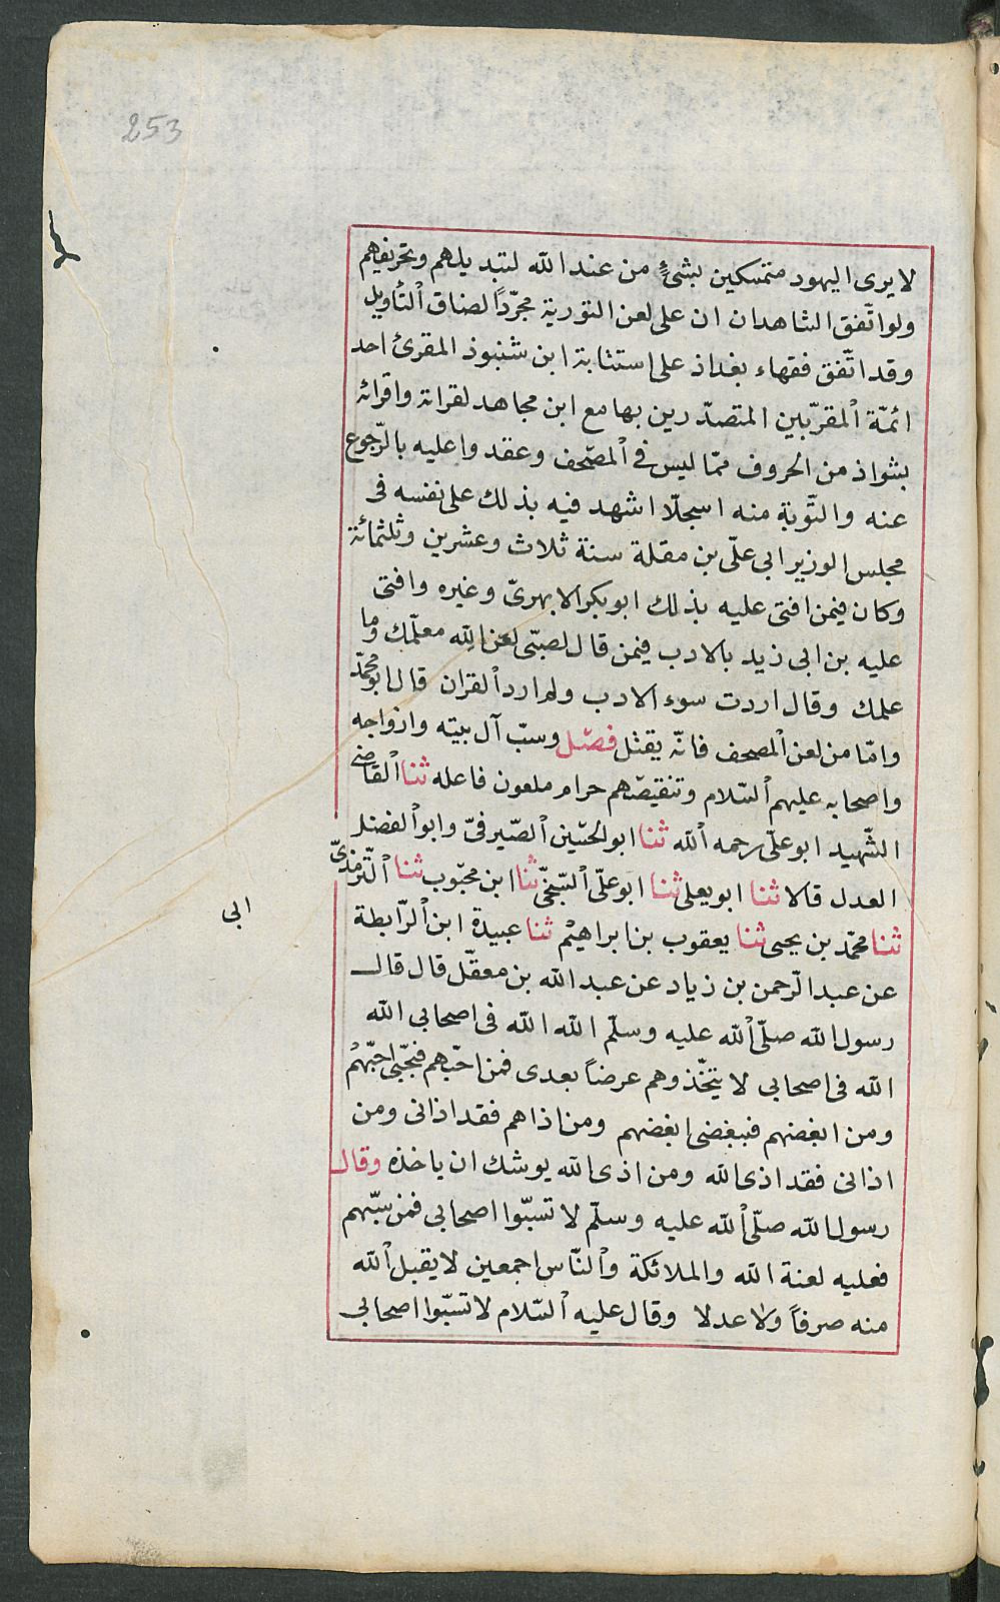 253
لا يرى اليهود متمسكين بشئ من عند الله لتبديلهم وتحريفهم
ولو اتّفق الشاهدان ان على لعن التورية مجرّدا لضاق التّأويل
وقد اتّفق فقهاء بغداذ على استثابة ابن شنبوذ المقرئ احد
ائمّة المقرّبين المتصدّرين بها مع ابن مجاهد لقراته واقرائه
بشواذ من الحروف ممّا ليس في المصحف وعقدوا عليه بالرّجوع
عنه والتّوبة منه اسجلّا اشهد فيه بذلك على نفسه فى
مجلس الوزير ابى علّى بن مقلة سنة ثلاث وعشرين وثلثمائة
وكان فيمن افتى عليه بذلك ابو بكر الابهرىّ وغيره وافتى
عليه بن ابى زيد بالادب فيمن قال لصبىّ لعن الله معلّمك وما
علمك وقال اردت سوء الادب ولم ارد القران قال ابو محمّد
وامّا من لعن المصحف فانّه يقتل فصل وسبّ آل بيته وازواجه
واصحابه عليهم السّلام وتنقيصّهم حرام ملعون فاعله ثنا القاضى
الشّهيد ابو علّى رحمه الله ثنا ابو الحسّين الصّيرفىّ وابو الفضل
العدل قالا ثنا ابو يعلى ثنا ابو علّى السّبخىّ ثنا ابن محبّوب ثنا التّرمذىّ
ثنا محمّد بن يحيى ثنا يعقوب بن ابراهيم ثنا عبيدة ابن الرّابطة
ابى
عن عبد الرّحمن بن زياد عن عبد الله بن معقّل قال قال
رسول الله صلّى الله عليه وسلّم الله الله فى اصحابى الله
الله فى اصحابى لا يتخّذوهم عرضاً بعدى فمن احبّهم فبحّبى احبّهم
ومن ابغضهم فببغضى ابغضهم ومن اذاهم فقد اذانى ومن
اذانى فقد اذى الله ومن اذى الله يوشك ان ياخذه وقال
رسول الله صلّى الله عليه وسلّم لا تسبّوا اصحابى فمن سبّهم
فعليه لعنة الله والملائكة والنّاس اجمعين لا يقبل الله
منه صرفاً ولا عدلا وقال عليه السّلام لا تسبّوا اصحابى